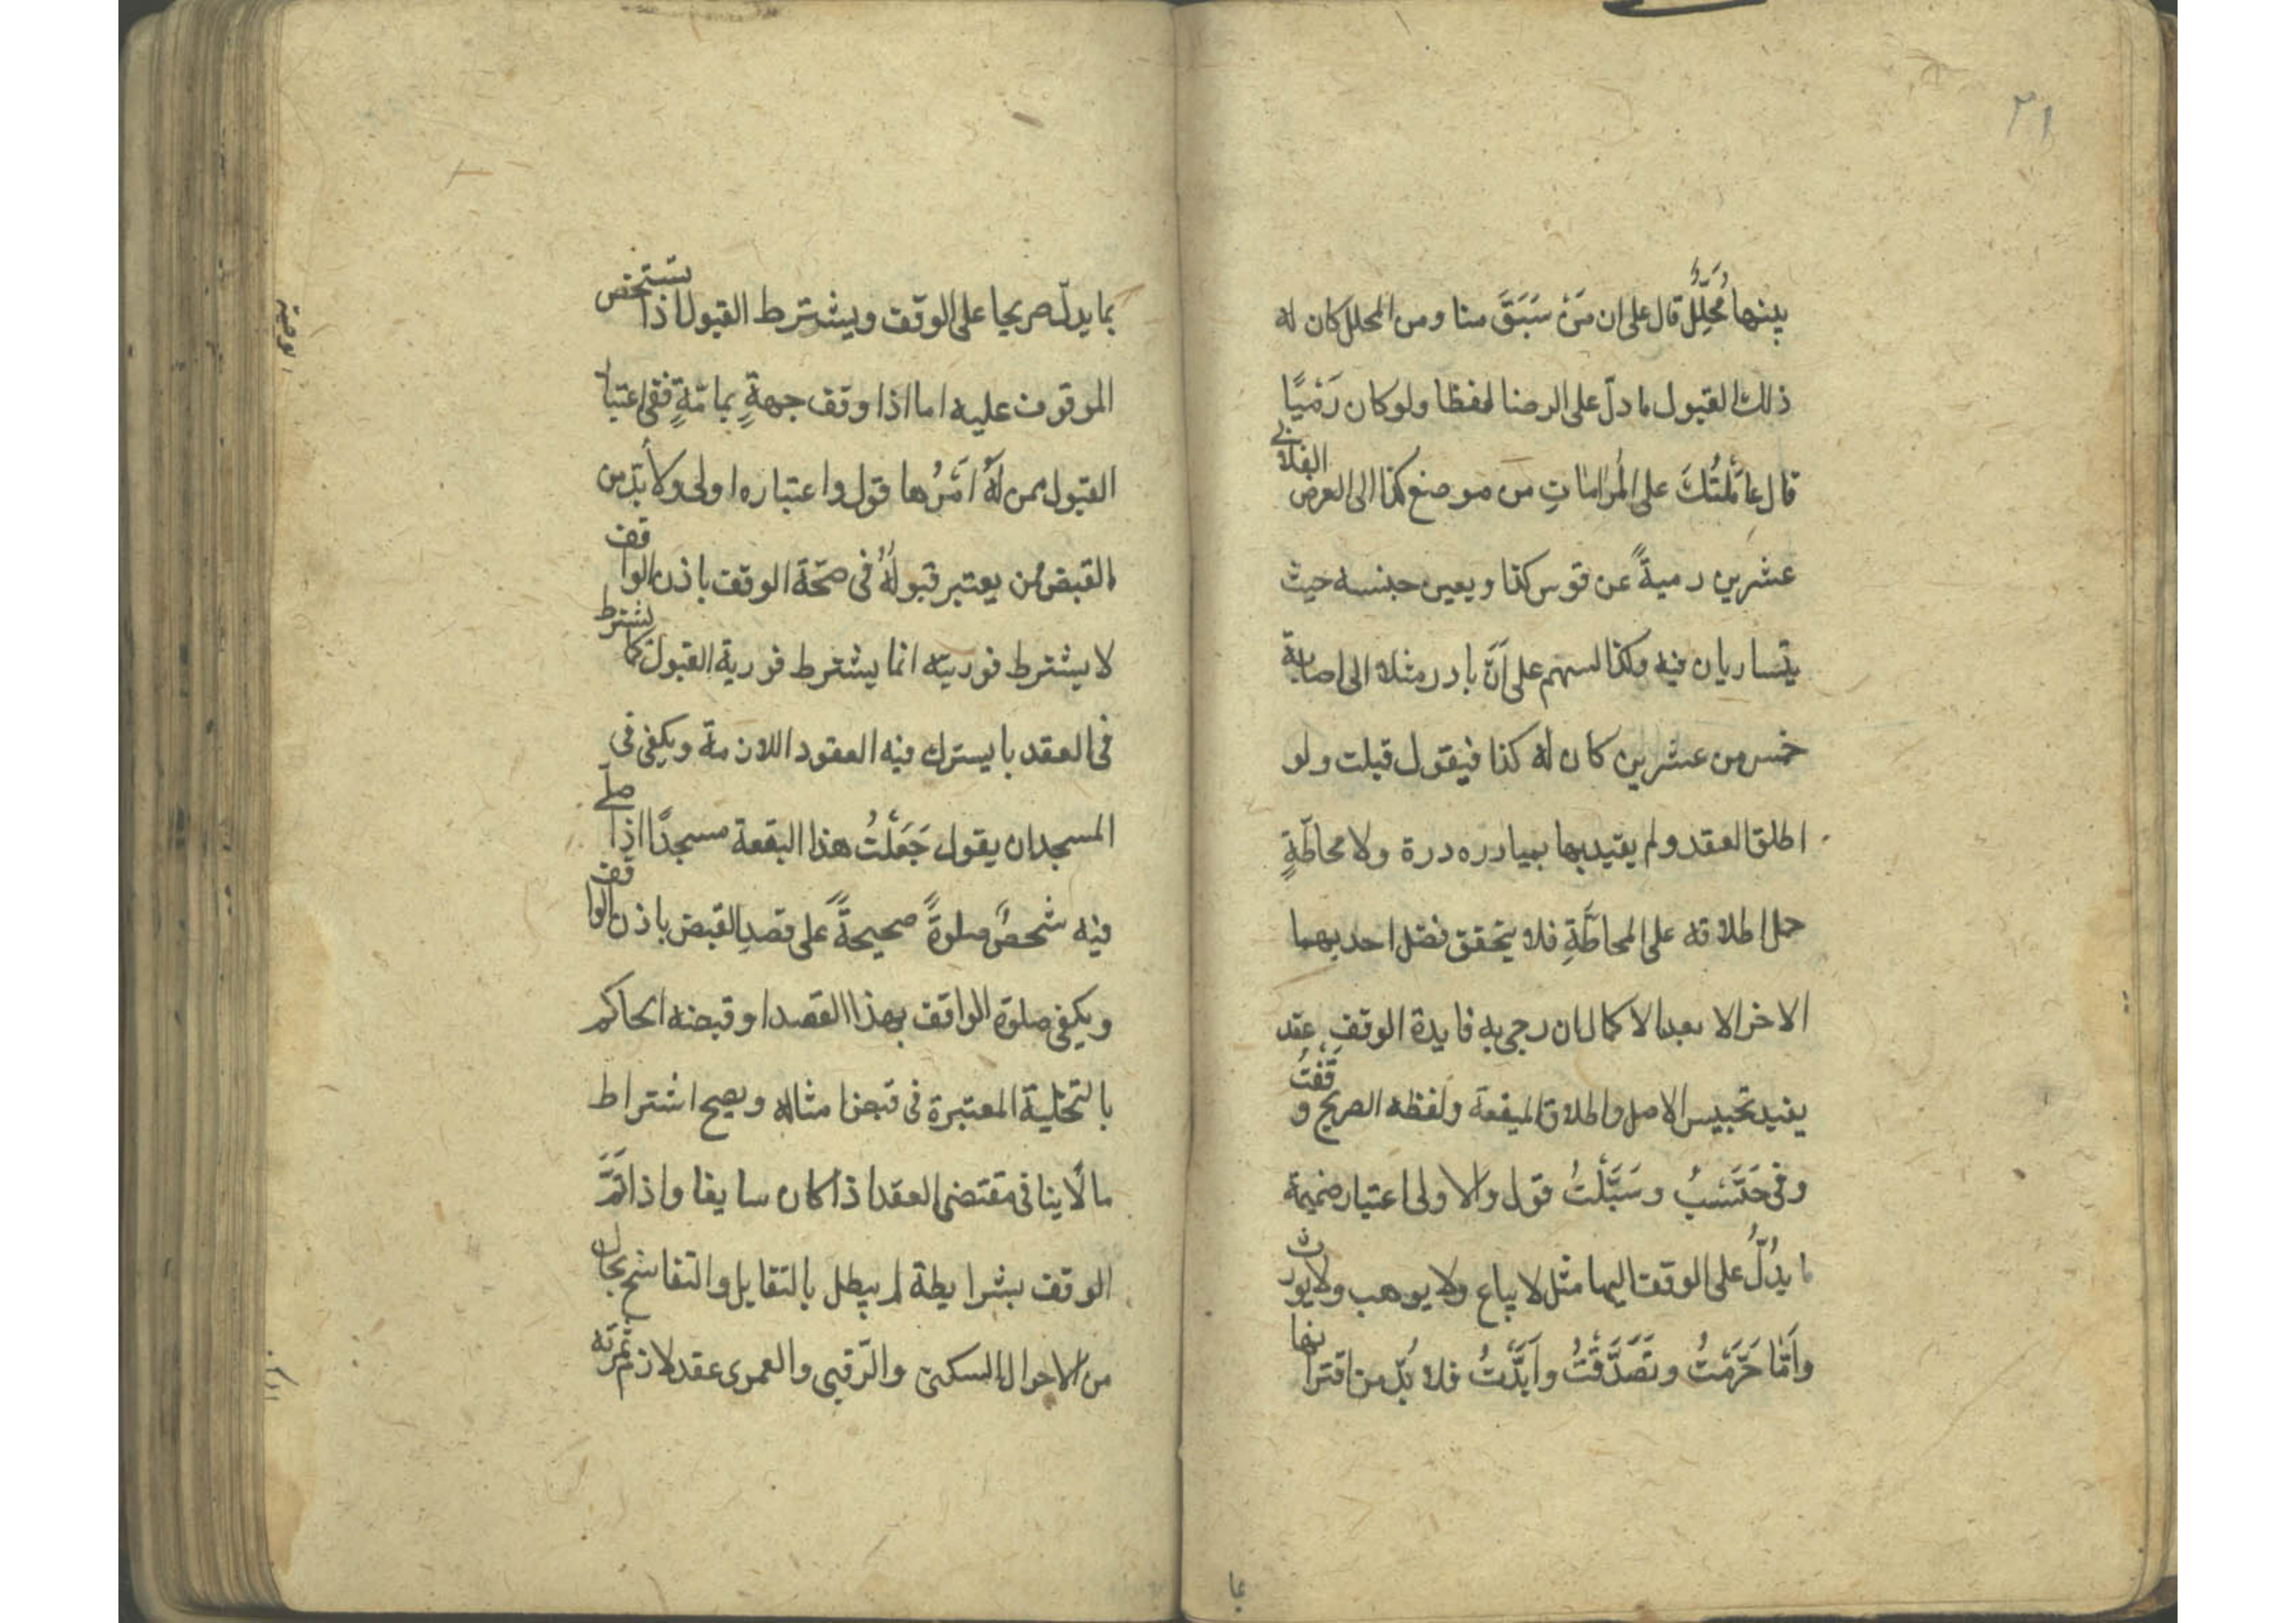 ٢١
بينهما مُحَلِّلٌ قال على ان مَنْ سَبَقَ منا ومن المحلل كان له
ذلك القبول ما دلّ على الرضا لفظا ولو كان رَمْيًا
قال عامَلْتُكَ على المُراماتِ من موضع كذا الى العرض الفلاني
عشرين رميةً عن قوس كذا ويعين جنسه حيث
يتساويان فيه وكذا السهم على انّ بادر مثلا الى اصابة
خمس من عشرين كان له كذا فيقول قبلت ولو
اطلق العقد ولم يقيد بها بمبادره درة ولا محاطّةٍ
حمل اطلاقه على المحاطّةِ فلا يتحقق فضل احديهما
الاخر الا بعد الاكمال ان رجى به فايدة الوقف عقد
يفيد تحبيس الاصل واطلاق الميفعة ولفظه الصريح وقَفْتُ
وفى حَبَّسْتُ وسَبَّلْتُ قول والاولى اعتبار ضميمة
ما يدُلُّ على الوقف اليهما مثل لا يباع ولا يوهب ولا يورث
واَمّا حَرَّمْتُ وتَصَدَّقْتُ واَبَّدْتُ فلا بُدّ من اقترانها
بما
بما يدلّ صريحا على الوقف ويشترط القبول اذا شخص
الموقوف عليه اما اذا وقف جهةٍ بمامّةٍ ففى اعتبار
القبول ممن لَهُ اَمْرُها قول واعتباره اولى ولا بُدّ من
القبض ممن يعتبر قبولُهُ فى صحّة الوقف باذن الواقف
لا يشترط فوريته انما يشترط فورية القبول كما يشترط
فى العقد با يسترك فيه العقود اللازمة ويكفى فى
المسجد ان يقول جَعَلْتُ هذا البقعة مسجدًا اذا صلّى
فيه شخصٌ صلوةً صحيحةً على قصدِ القبض باذن الواقف
ويكفى صلوة الواقف بهذا القصد او قبضه الحاكم
بالتخلية المعتبرة فى قبض امثاله ويصح اشتراط
ما لا ينافى مقتضى العقد اذا كان سايغا واذا تَمَّ
الوقف بشرايطة لم يبطل بالتقايل والتفاسخ بحال
من الاحوال السكنى والرّقبى والعمرى عقد لازم ثمرته